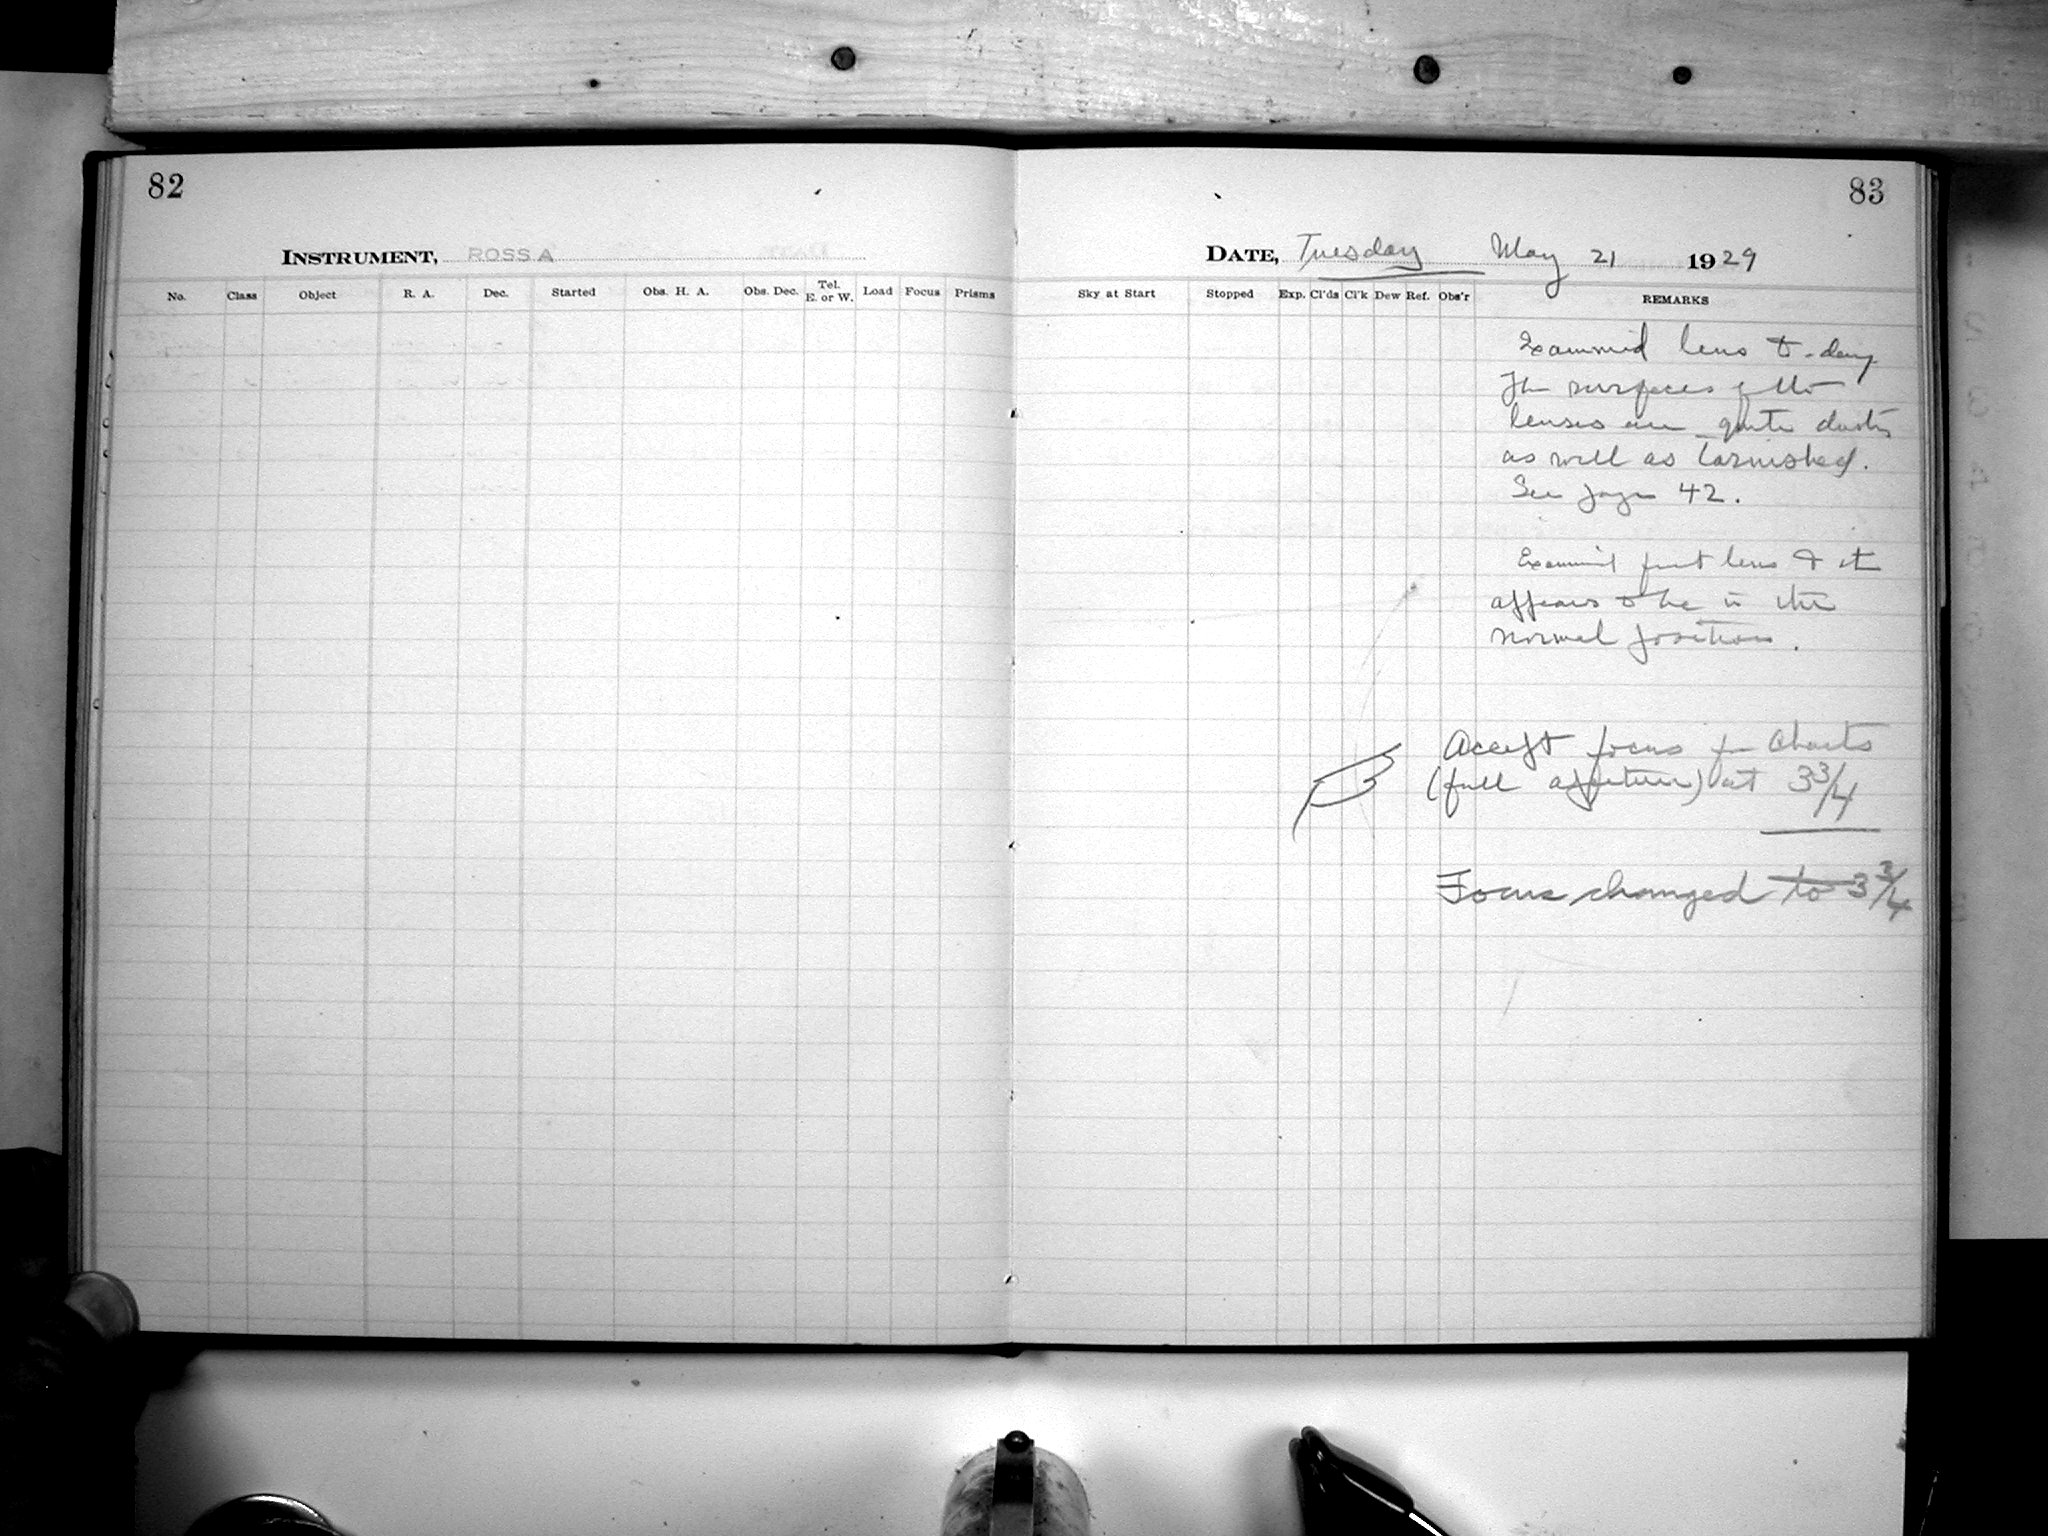 82
83
INSTRUMENT, ROSS A
DATE, Tuesday May 21 1929
No. Class Object R. A. Dec. Started Obs. H. A. Obs. Dec. Tel. E. or W. Load Focus Prisms
Sky at Start Stopped Exp. Cl'ds Cl'k Dew Ref. Obs'r REMARKS
Examined lens to-day
The surfaces of the
lenses are quite dusty
as well as tarnished.
See page 42.
Examined front lens & it
appears to be in the
normal position.
Accept focus for Charts
(full aperture) at 3 3/4
Focus changed to 3 3/4